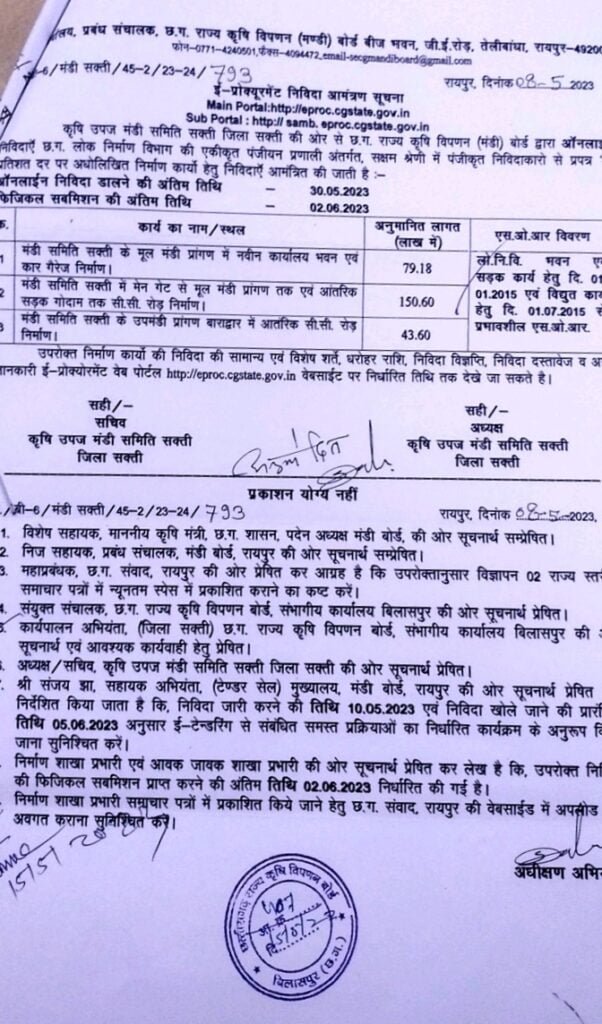 प्रबंध संचालक, छ.ग. राज्य कृषि विपणन (मण्डी) बोर्ड बीज भवन, जी.ई.रोड़, तेलीबांधा, रायपुर-49200
फोन-0771-4240501,फैक्स-4094472,email-secgmandiboard@gmail.com
बी-6/मंडी सक्ती/45-2/23-24/ 793 रायपुर, दिनांक 08-5-2023
ई-प्रोक्यूरमेंट निविदा आमंत्रण सूचना
Main Portal:http://eproc.cgstate.gov.in
Sub Portal : http:// samb. eproc.cgstate.gov.in
कृषि उपज मंडी समिति सक्ती जिला सक्ती की ओर से छ.ग. राज्य कृषि विपणन (मंडी) बोर्ड द्वारा ऑनलाई
निविदाऐं छ.ग. लोक निर्माण विभाग की एकीकृत पंजीयन प्रणाली अंतर्गत, सक्षम श्रेणी में पंजीकृत निविदाकारो से प्रपत्र
प्रतिशत दर पर अधोलिखित निर्माण कार्यो हेतु निविदाऐं आमंत्रित की जाती है :–
ऑनलाईन निविदा डालने की अंतिम तिथि – 30.05.2023
फिजिकल सबमिशन की अंतिम तिथि – 02.06.2023
क. कार्य का नाम/स्थल अनुमानित लागत (लाख में) एस.ओ.आर विवरण
1 मंडी समिति सक्ती के मूल मंडी प्रांगण में नवीन कार्यालय भवन एवं कार गैरेज निर्माण। 79.18
2 मंडी समिति सक्ती में मेन गेट से मूल मंडी प्रांगण तक एवं आंतरिक सड़क गोदाम तक सी.सी. रोड़ निर्माण। 150.60
3 मंडी समिति सक्ती के उपमंडी प्रांगण बाराद्वार में आतंरिक सी.सी. रोड़ निर्माण। 43.60
लो.नि.वि. भवन ए
सड़क कार्य हेतु दि. 01
01.2015 एवं विद्युत का
हेतु दि. 01.07.2015 से
प्रभावशील एस.ओ.आर.
उपरोक्त निर्माण कार्यो की निविदा की सामान्य एवं विशेष शर्ते, धरोहर राशि, निविदा विज्ञप्ति, निविदा दस्तावेज व अ
जानकारी ई-प्रोक्योरमेंट वेब पोर्टल http://eproc.cgstate.gov.in वेबसाईट पर निर्धारित तिथि तक देखे जा सकते है।
सही/– सही/–
सचिव अध्यक्ष
कृषि उपज मंडी समिति सक्ती कृषि उपज मंडी समिति सक्ती
जिला सक्ती जिला सक्ती
प्रकाशन योग्य नहीं
/बी-6/मंडी सक्ती/45-2/23-24/ 793 रायपुर, दिनांक 08-5-2023,
1. विशेष सहायक, माननीय कृषि मंत्री, छ.ग. शासन, पदेन अध्यक्ष मंडी बोर्ड, की ओर सूचनार्थ सम्प्रेषित।
2. निज सहायक, प्रबंध संचालक, मंडी बोर्ड, रायपुर की ओर सूचनार्थ सम्प्रेषित।
3. महाप्रबंधक, छ.ग. संवाद, रायपुर की ओर प्रेषित कर आग्रह है कि उपरोक्तानुसार विज्ञापन 02 राज्य स्तरी
समाचार पत्रों में न्यूनतम स्पेस में प्रकाशित कराने का कष्ट करें।
4. संयुक्त संचालक, छ.ग. राज्य कृषि विपणन बोर्ड, संभागीय कार्यालय बिलासपुर की ओर सूचनार्थ प्रेषित।
5. कार्यपालन अभियंता, (जिला सक्ती) छ.ग. राज्य कृषि विपणन बोर्ड, संभागीय कार्यालय बिलासपुर की ओ
सूचनार्थ एवं आवश्यक कार्यवाही हेतु प्रेषित।
अध्यक्ष/सचिव, कृषि उपज मंडी समिति सक्ती जिला सक्ती की ओर सूचनार्थ प्रेषित।
श्री संजय झा, सहायक अभियंता, (टेण्डर सेल) मुख्यालय, मंडी बोर्ड, रायपुर की ओर सूचनार्थ प्रेषित
निर्देशित किया जाता है कि, निविदा जारी करने की तिथि 10.05.2023 एवं निविदा खोले जाने की प्रारं
तिथि 05.06.2023 अनुसार ई-टेन्डरिंग से संबंधित समस्त प्रक्रियाओं का निर्धारित कार्यक्रम के अनुरूप कि
जाना सुनिश्चित करें।
निर्माण शाखा प्रभारी एवं आवक जावक शाखा प्रभारी की ओर सूचनार्थ प्रेषित कर लेख है कि, उपरोक्त नि
की फिजिकल सबमिशन प्राप्त करने की अंतिम तिथि 02.06.2023 निर्धारित की गई है।
निर्माण शाखा प्रभारी समाचार पत्रों में प्रकाशित किये जाने हेतु छ.ग. संवाद, रायपुर की वेबसाईड में अपलोड
अवगत कराना सुनिश्चित करें।
अधीक्षण अभि
छत्तीसगढ़ राज्य कृषि विपणन बोर्ड
बिलासपुर (छ.ग.)